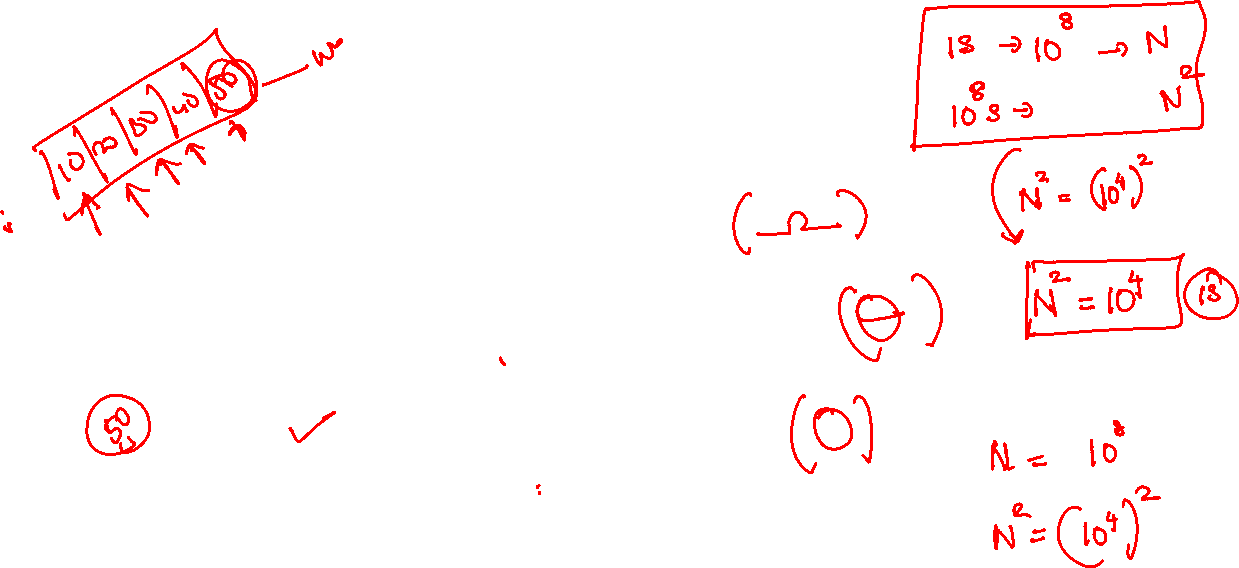 10 20 30 40 50
1s → 10⁸ → N
10⁸s → N²
N² = (10⁴)²
(Ω)
N² = 10⁴ 1s
(Θ)
(O)
50
N = 10⁸
N² = (10⁴)²